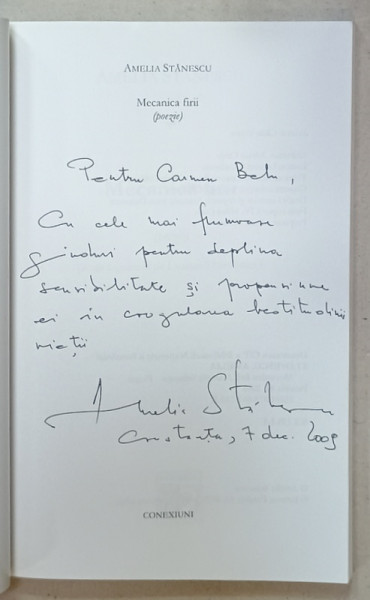 AMELIA STĂNESCU
Mecanica firii
(poezie)
Pentru Carmen Belu,
Cu cele mai frumoase
gînduri pentru deplina
sensibilitate și propensiune
ei în coagularea beatitudinii
vieții
Amelia Stănescu
Constanța, 7 dec. 2009
CONEXIUNI